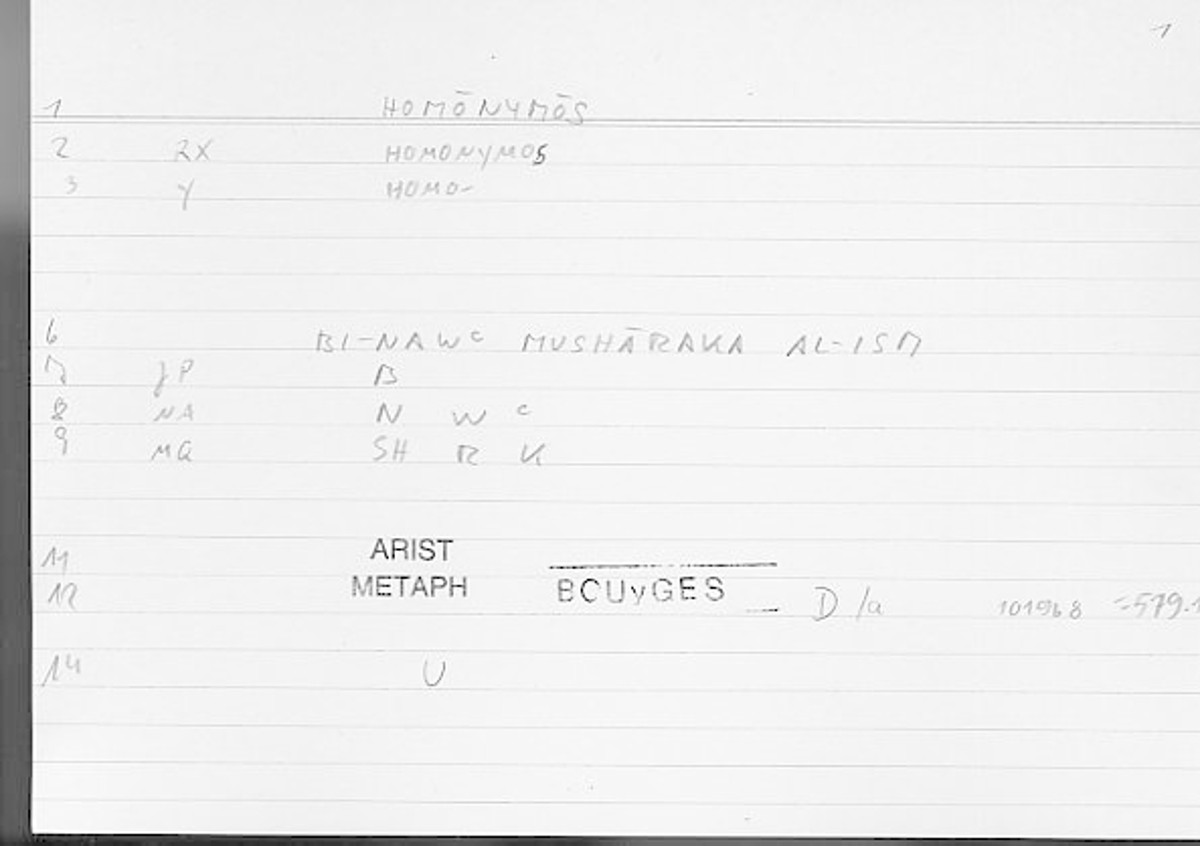 1
1 HOMŌNYMŌS
2 RX HOMONYMOS
3 Y HOMO-
6 BI-NAWᶜ MUSHĀRAKA AL-ISM
7 JP B
8 NA N W ᶜ
9 MQ SH R K
11 ARIST
12 METAPH BOUyGES D/a 101968 =579.1
14 U